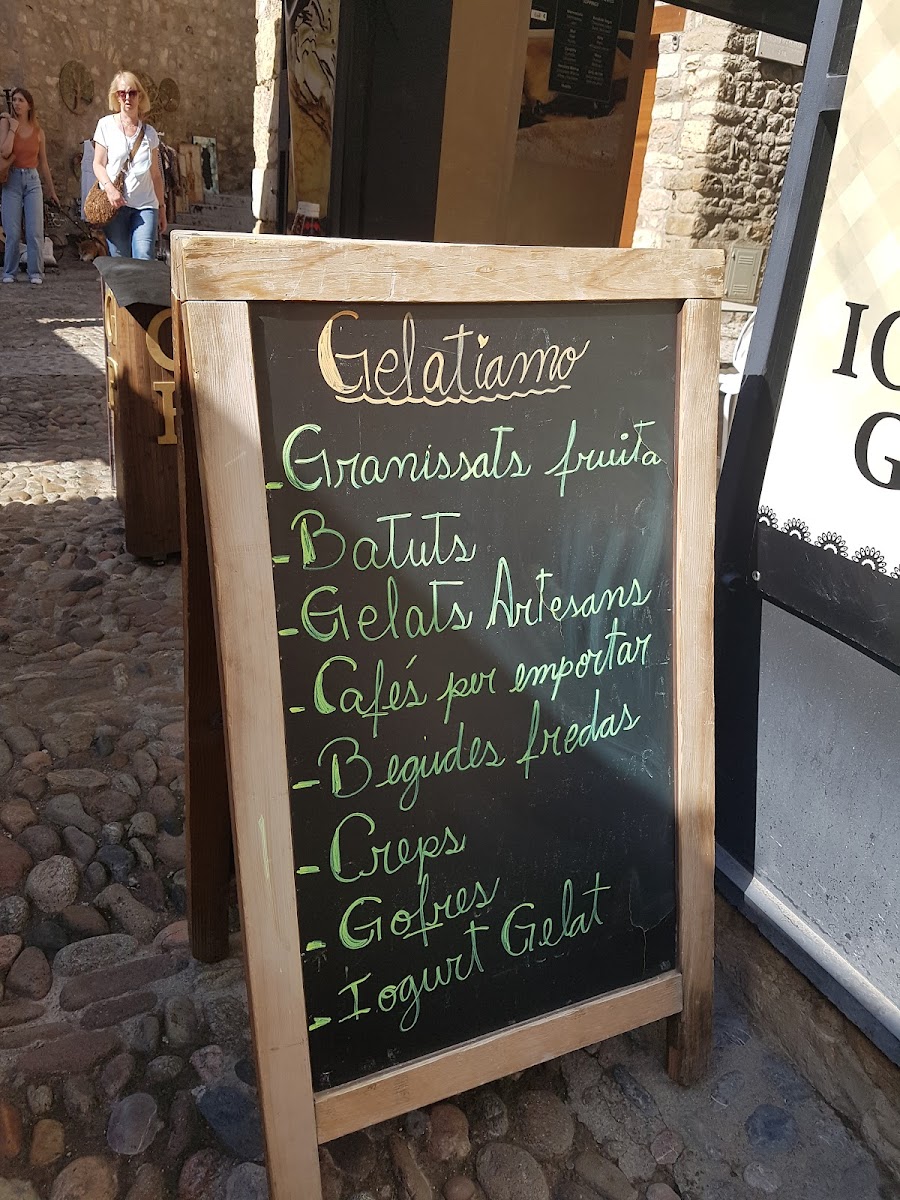 Gelatiamo
- Granissats fruita
- Batuts
- Gelats Artesans
- Cafés per emportar
- Begudes fredas
- Creps
- Gofres
- Iogurt Gelat